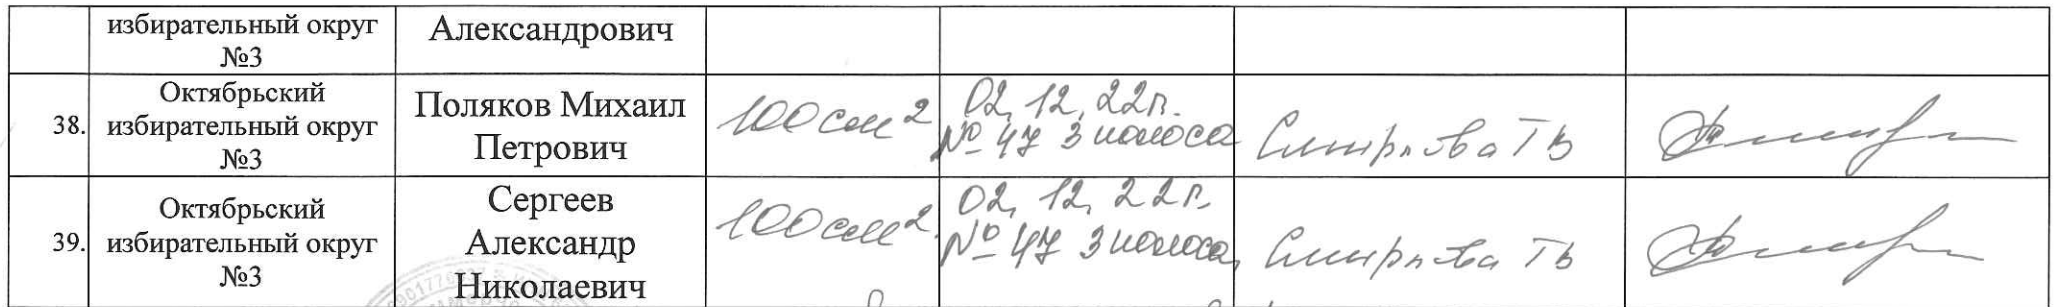 избирательный округ
№3
Александрович
38.
Октябрьский
избирательный округ
№3
Поляков Михаил
Петрович
100 см2
02.12.22г.
№ 47 3 полоса
Смирнова ТВ
39.
Октябрьский
избирательный округ
№3
Сергеев
Александр
Николаевич
100 см2
02.12.22г.
№ 47 3 полоса
Смирнова ТВ